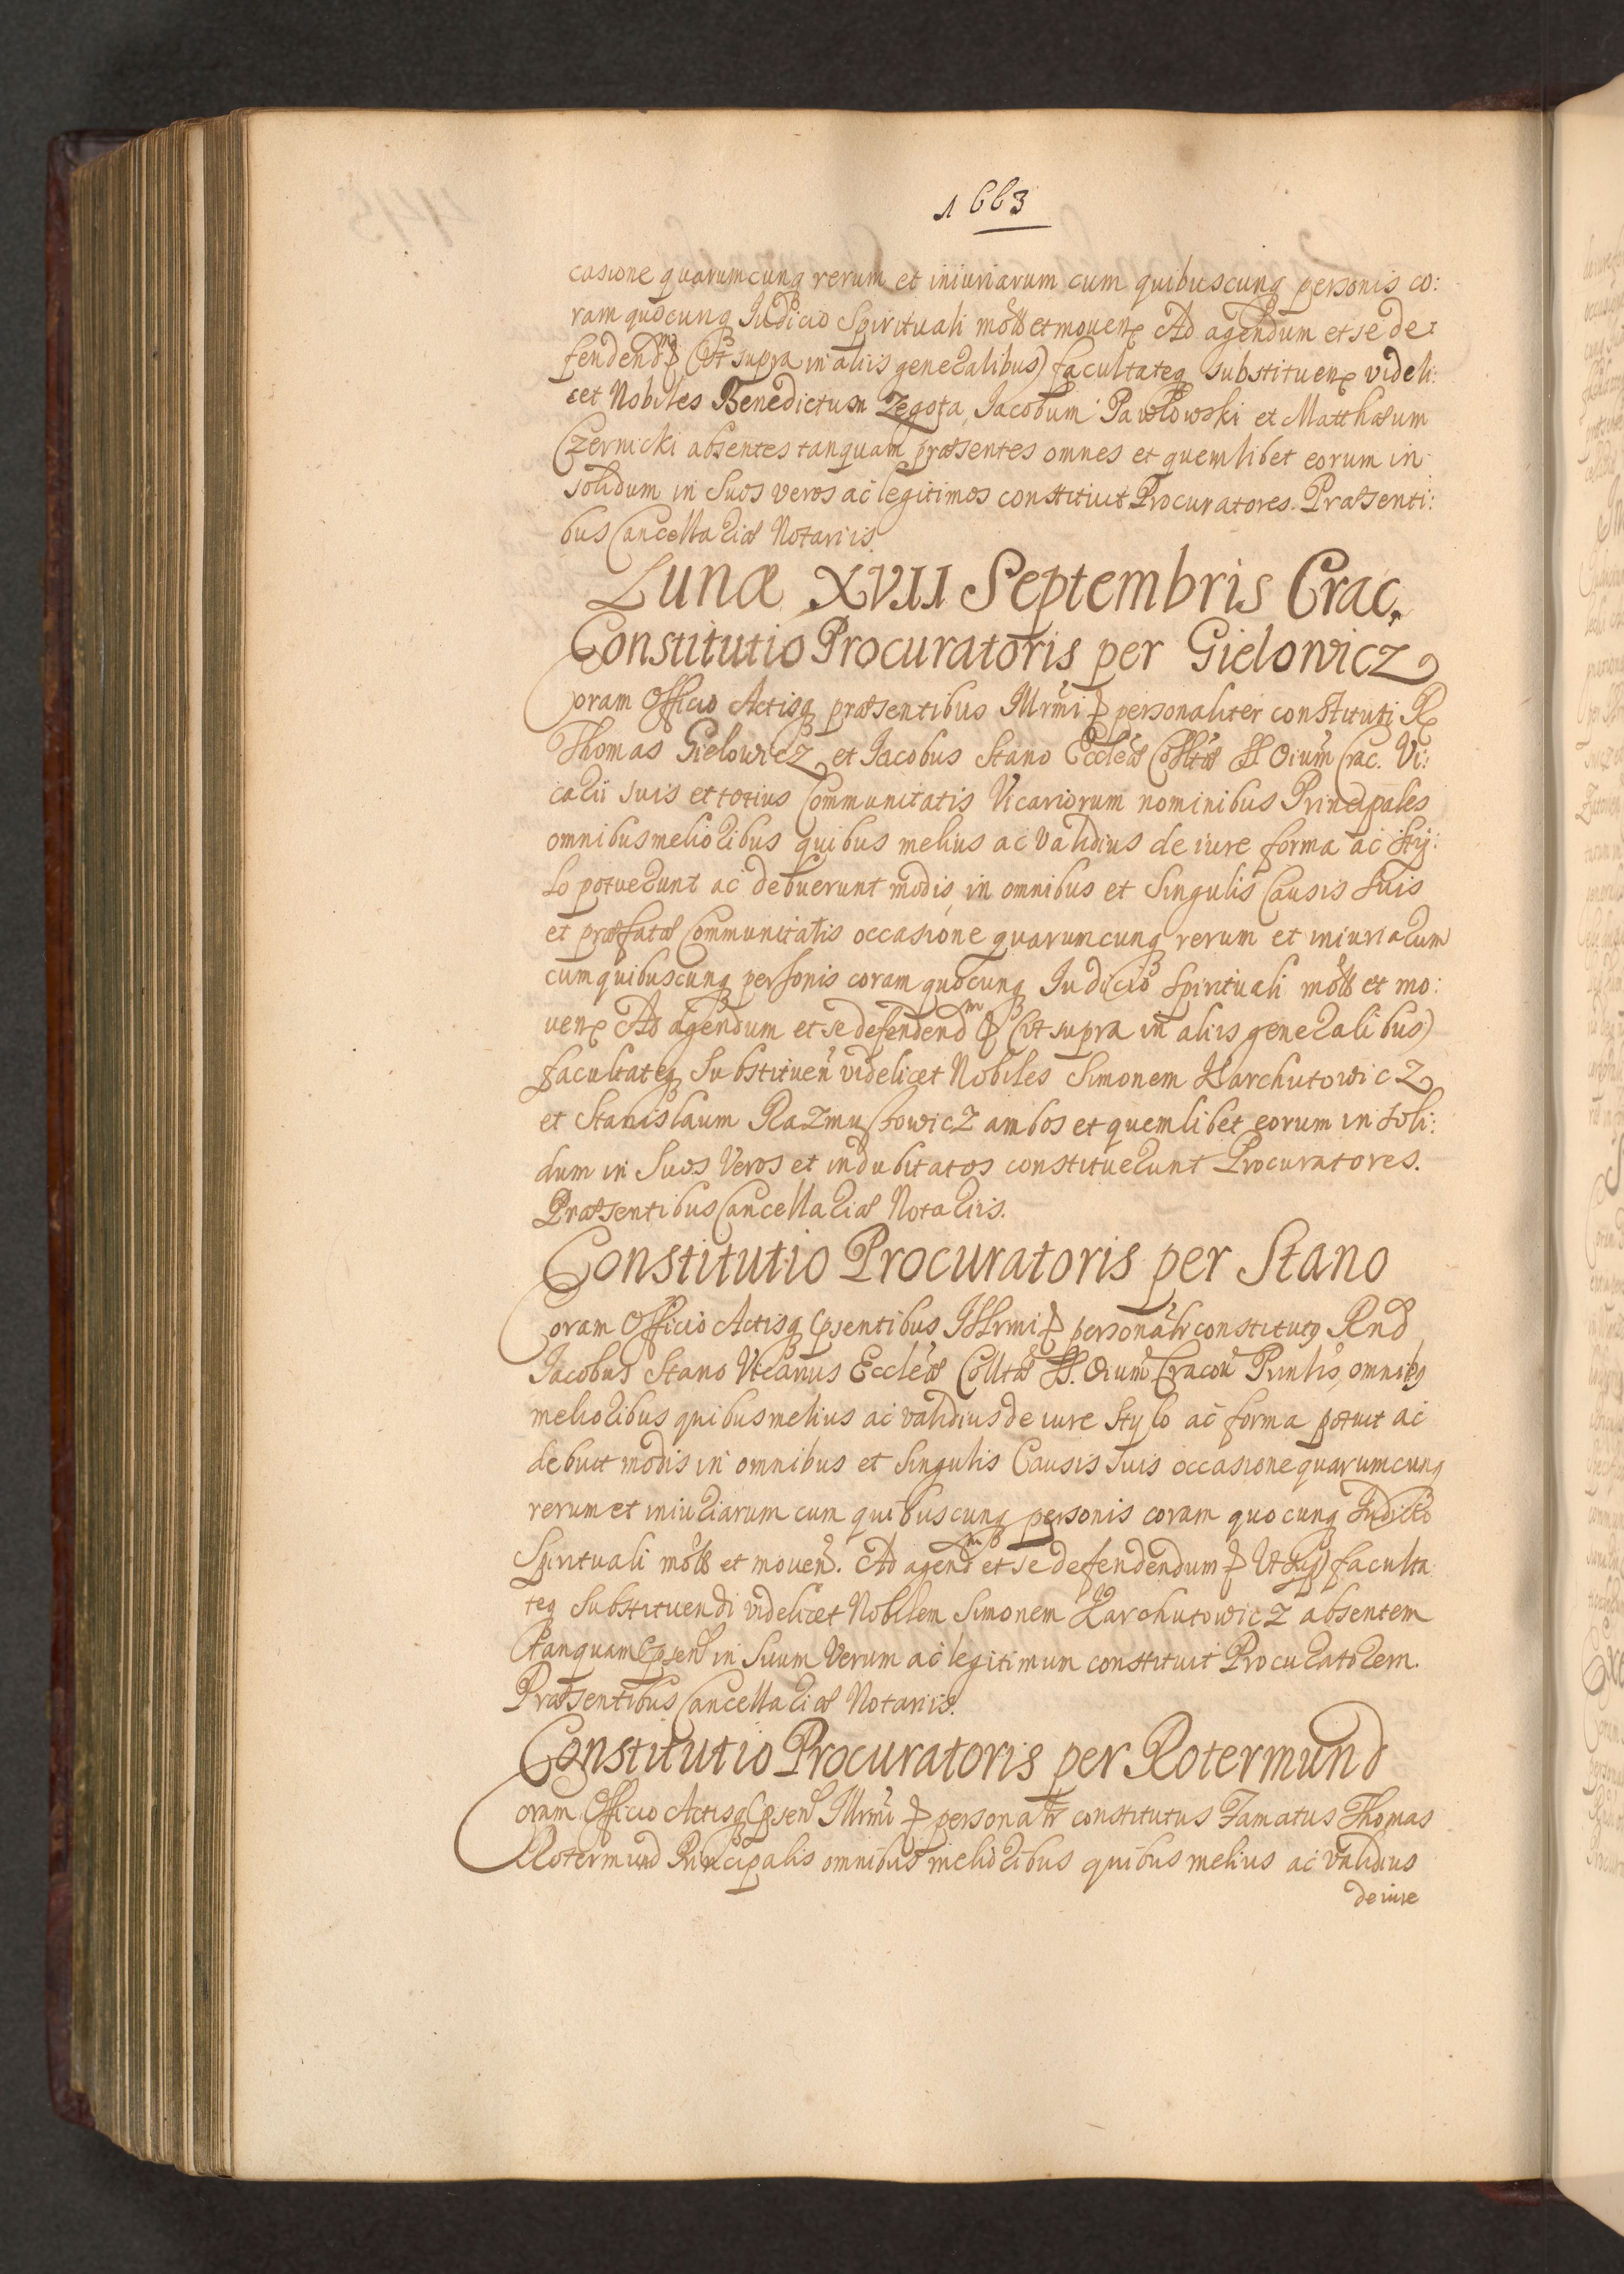 1663
casione quarumcunq rerum et iniuriarum cum quibuscunq personis co:
ram quocunq Iudicio Spirituali mōtis et mouen Ad agendum et se de:
fendendm (Ut supra in aliis generalibus) facultateq substituen videli:
cet Nobiles Benedictum Zegota, Jacobum Pawłowski et Matthæum
Czernicki absentes tanquam præsentes omnes et quemlibet eorum in
solidum in Suos veros ac legitimos constituit Procuratores. Præsenti:
bus Cancellariæ Notariis.
Lunæ XVII Septembris Crac.
Constitutio Procuratoris per Gielowicz
Coram Officio Actisq præsentibus Illrmi personaliter constituti R
Thomas Gielowicz et Jacobus Stano Eccleæ Colltæ SS Oium Crac. Vi:
carii suis et totius Communitatis Vicariorum nominibus Principales
omnibus melioribus quibus melius ac validius de iure forma ac sty:
lo potuerunt ac debuerunt modis, in omnibus et Singulis Causis suis
et præfatæ Communitatis occasione quarumcunq rerum et iniuriarum
cum quibuscunq personis coram quocunq Iudicio Spirituali mōtis et mo:
uen Ad agendum et se defendendm (Ut supra in aliis generalibus)
facultateq Substituen videlicet Nobiles Simonem Harchutowicz
et Stanislaum Razmustowicz ambos et quemlibet eorum in soli:
dum in Suos Veros et indubitatos constituerunt Procuratores.
Præsentibus Cancellariæ Notariis.
Constitutio Procuratoris per Stano
Coram Officio Actisq psentibus Illrmi personalr constitutq Rnd
Jacobus Stano Vicarius Eccleæ Colltæ SS. Oium Cracou Prinlis, omnibq
melioribus quibus melius ac validius de iure Stylo ac forma potuit ac
debuit modis in omnibus et Singulis Causis suis occasione quarumcunq
rerum et iniuriarum cum quibuscunq personis coram quocunq Iudicio
Spirituali mōtis et mouen. Ad agend et se defendendum Ut sup) faculta
teq Substituendi videlicet Nobilem Simonem Harchutowicz absentem
tanquam psen in Suum Verum ac legitimum constituit Procuratorem.
Præsentibus Cancellariæ Notariis.
Constitutio Procuratoris per Rotermund
Coram Officio Actisq psen Illrmi personalr constitutus Famatus Thomas
Rotermund Principalis omnibus melioribus quibus melius ac validius
de iure